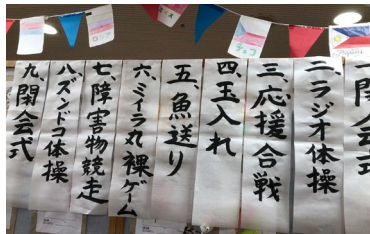 ロシア
チェコ
開会式
二、ラジオ体操
三、応援合戦
四、玉入れ
五、魚送り
六、ミイラ丸裸ゲーム
七、障害物競走
八、ズンドコ体操
九、閉会式